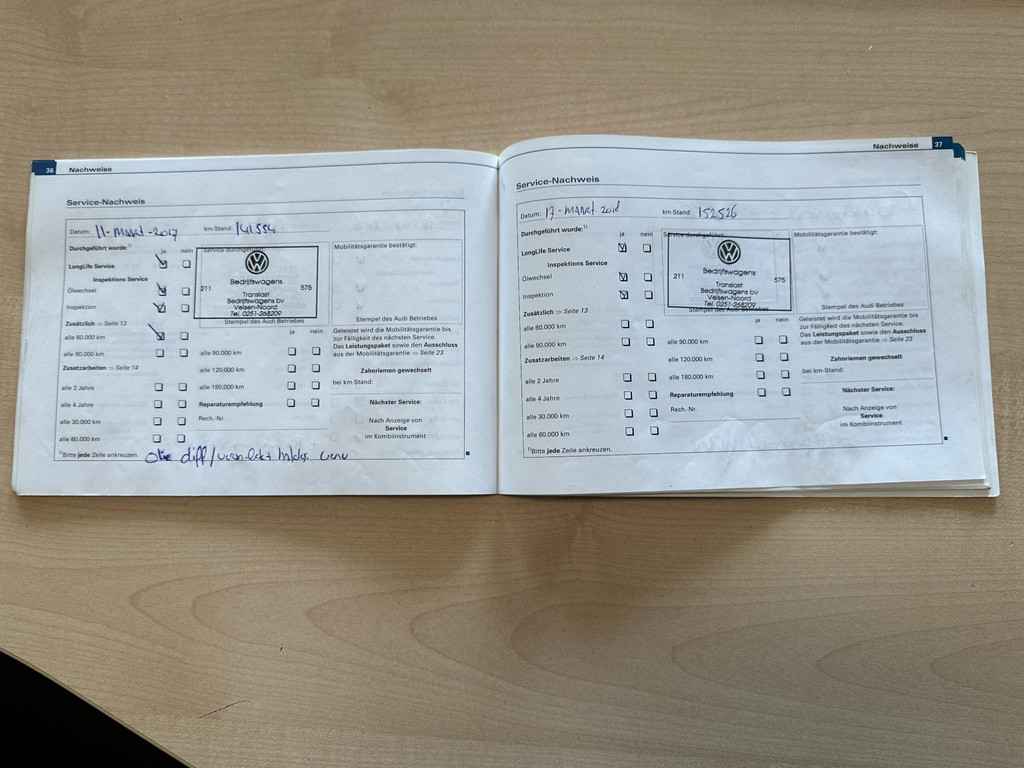 36 Nachweise
Service-Nachweis
Datum: 11-Maart-2017 km-Stand: 141554
Durchgeführt wurde:¹⁾
ja nein
LongLife Service
Inspektions Service
Ölwechsel
Inspektion
Zusätzlich ⇒ Seite 13
alle 60.000 km
alle 90.000 km
Zusatzarbeiten ⇒ Seite 14
alle 2 Jahre
alle 4 Jahre
alle 30.000 km
alle 60.000 km
¹⁾Bitte jede Zeile ankreuzen.
Service durchgeführt:
VW
Bedrijfswagens
211 575
Translast
Bedrijfswagens bv
Velsen-Noord
Tel. 0251-268209
Stempel des Audi Betriebes
ja nein
alle 90.000 km
alle 120.000 km
alle 180.000 km
Reparaturempfehlung
Rech. Nr.
Mobilitätsgarantie bestätigt:
Stempel des Audi Betriebes
Geleistet wird die Mobilitätsgarantie bis
zur Fälligkeit des nächsten Service.
Das Leistungspaket sowie den Ausschluss
aus der Mobilitätsgarantie ⇒ Seite 23
Zahnriemen gewechselt
bei km-Stand:
Nächster Service:
Nach Anzeige von
Service
im Kombiinstrument
diff/
Nachweise 37
Service-Nachweis
Datum: 17-Maart 2018 km-Stand: 152526
Durchgeführt wurde:¹⁾
ja nein
LongLife Service
Inspektions Service
Ölwechsel
Inspektion
Zusätzlich ⇒ Seite 13
alle 60.000 km
alle 90.000 km
Zusatzarbeiten ⇒ Seite 14
alle 2 Jahre
alle 4 Jahre
alle 30.000 km
alle 60.000 km
¹⁾Bitte jede Zeile ankreuzen.
Service durchgeführt:
VW
Bedrijfswagens
211 575
Translast
Bedrijfswagens bv
Velsen-Noord
Tel. 0251-268209
Stempel des Audi Betriebes
ja nein
alle 90.000 km
alle 120.000 km
alle 180.000 km
Reparaturempfehlung
Rech. Nr.
Mobilitätsgarantie bestätigt:
Stempel des Audi Betriebes
Geleistet wird die Mobilitätsgarantie bis
zur Fälligkeit des nächsten Service.
Das Leistungspaket sowie den Ausschluss
aus der Mobilitätsgarantie ⇒ Seite 23
Zahnriemen gewechselt
bei km-Stand:
Nächster Service:
Nach Anzeige von
Service
im Kombiinstrument